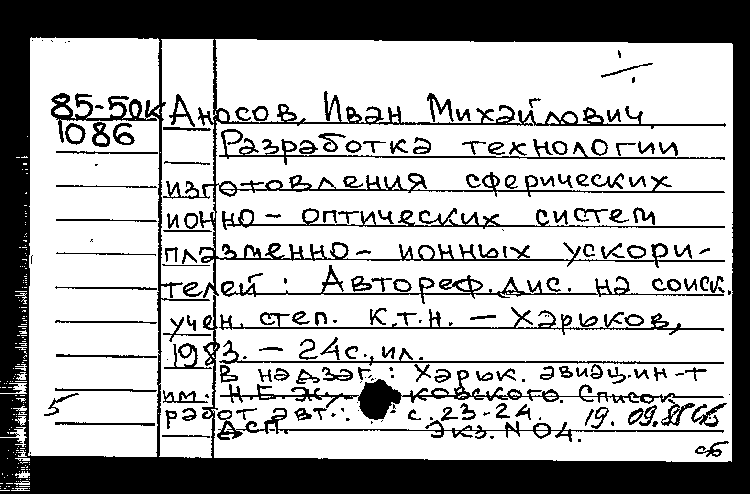 85-50к Аносов, Иван Михайлович.
1086 Разработка технологии
изготовления сферических
ионно-оптических систем
плазменно-ионных ускори-
телей: Автореф. дис. на соиск.
учен. степ. к.т.н. — Харьков,
1983. — 24с., ил.
В надзаг.: Харьк. авиац. ин-т
им. Н.Е. Жу ковского. Список
5 работ авт.: с. 23-24. 19.09.85
ДСП. Экз. N 04.
сб